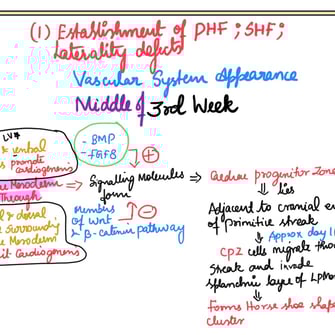 (1) Establishment of PHF; SHF;
Laterality defects
Vascular System Appearance
Middle of 3rd Week
LV*
& ventral
promote
Cardiogenesis
Mesoderm
Through
& dorsal
Surrounding
Mesoderm
Cardiogenesis
- BMP
- FGF8
+
Signalling Molecules
form
-
Members
of Wnt
& β-catenin pathway
Cardiac progenitor Zone
lies
Adjacent to cranial
of primitive streak
Approx day
CPZ cells migrate
Streak and invade
Splanchnic layer of
Forms Horse shoe
cluster